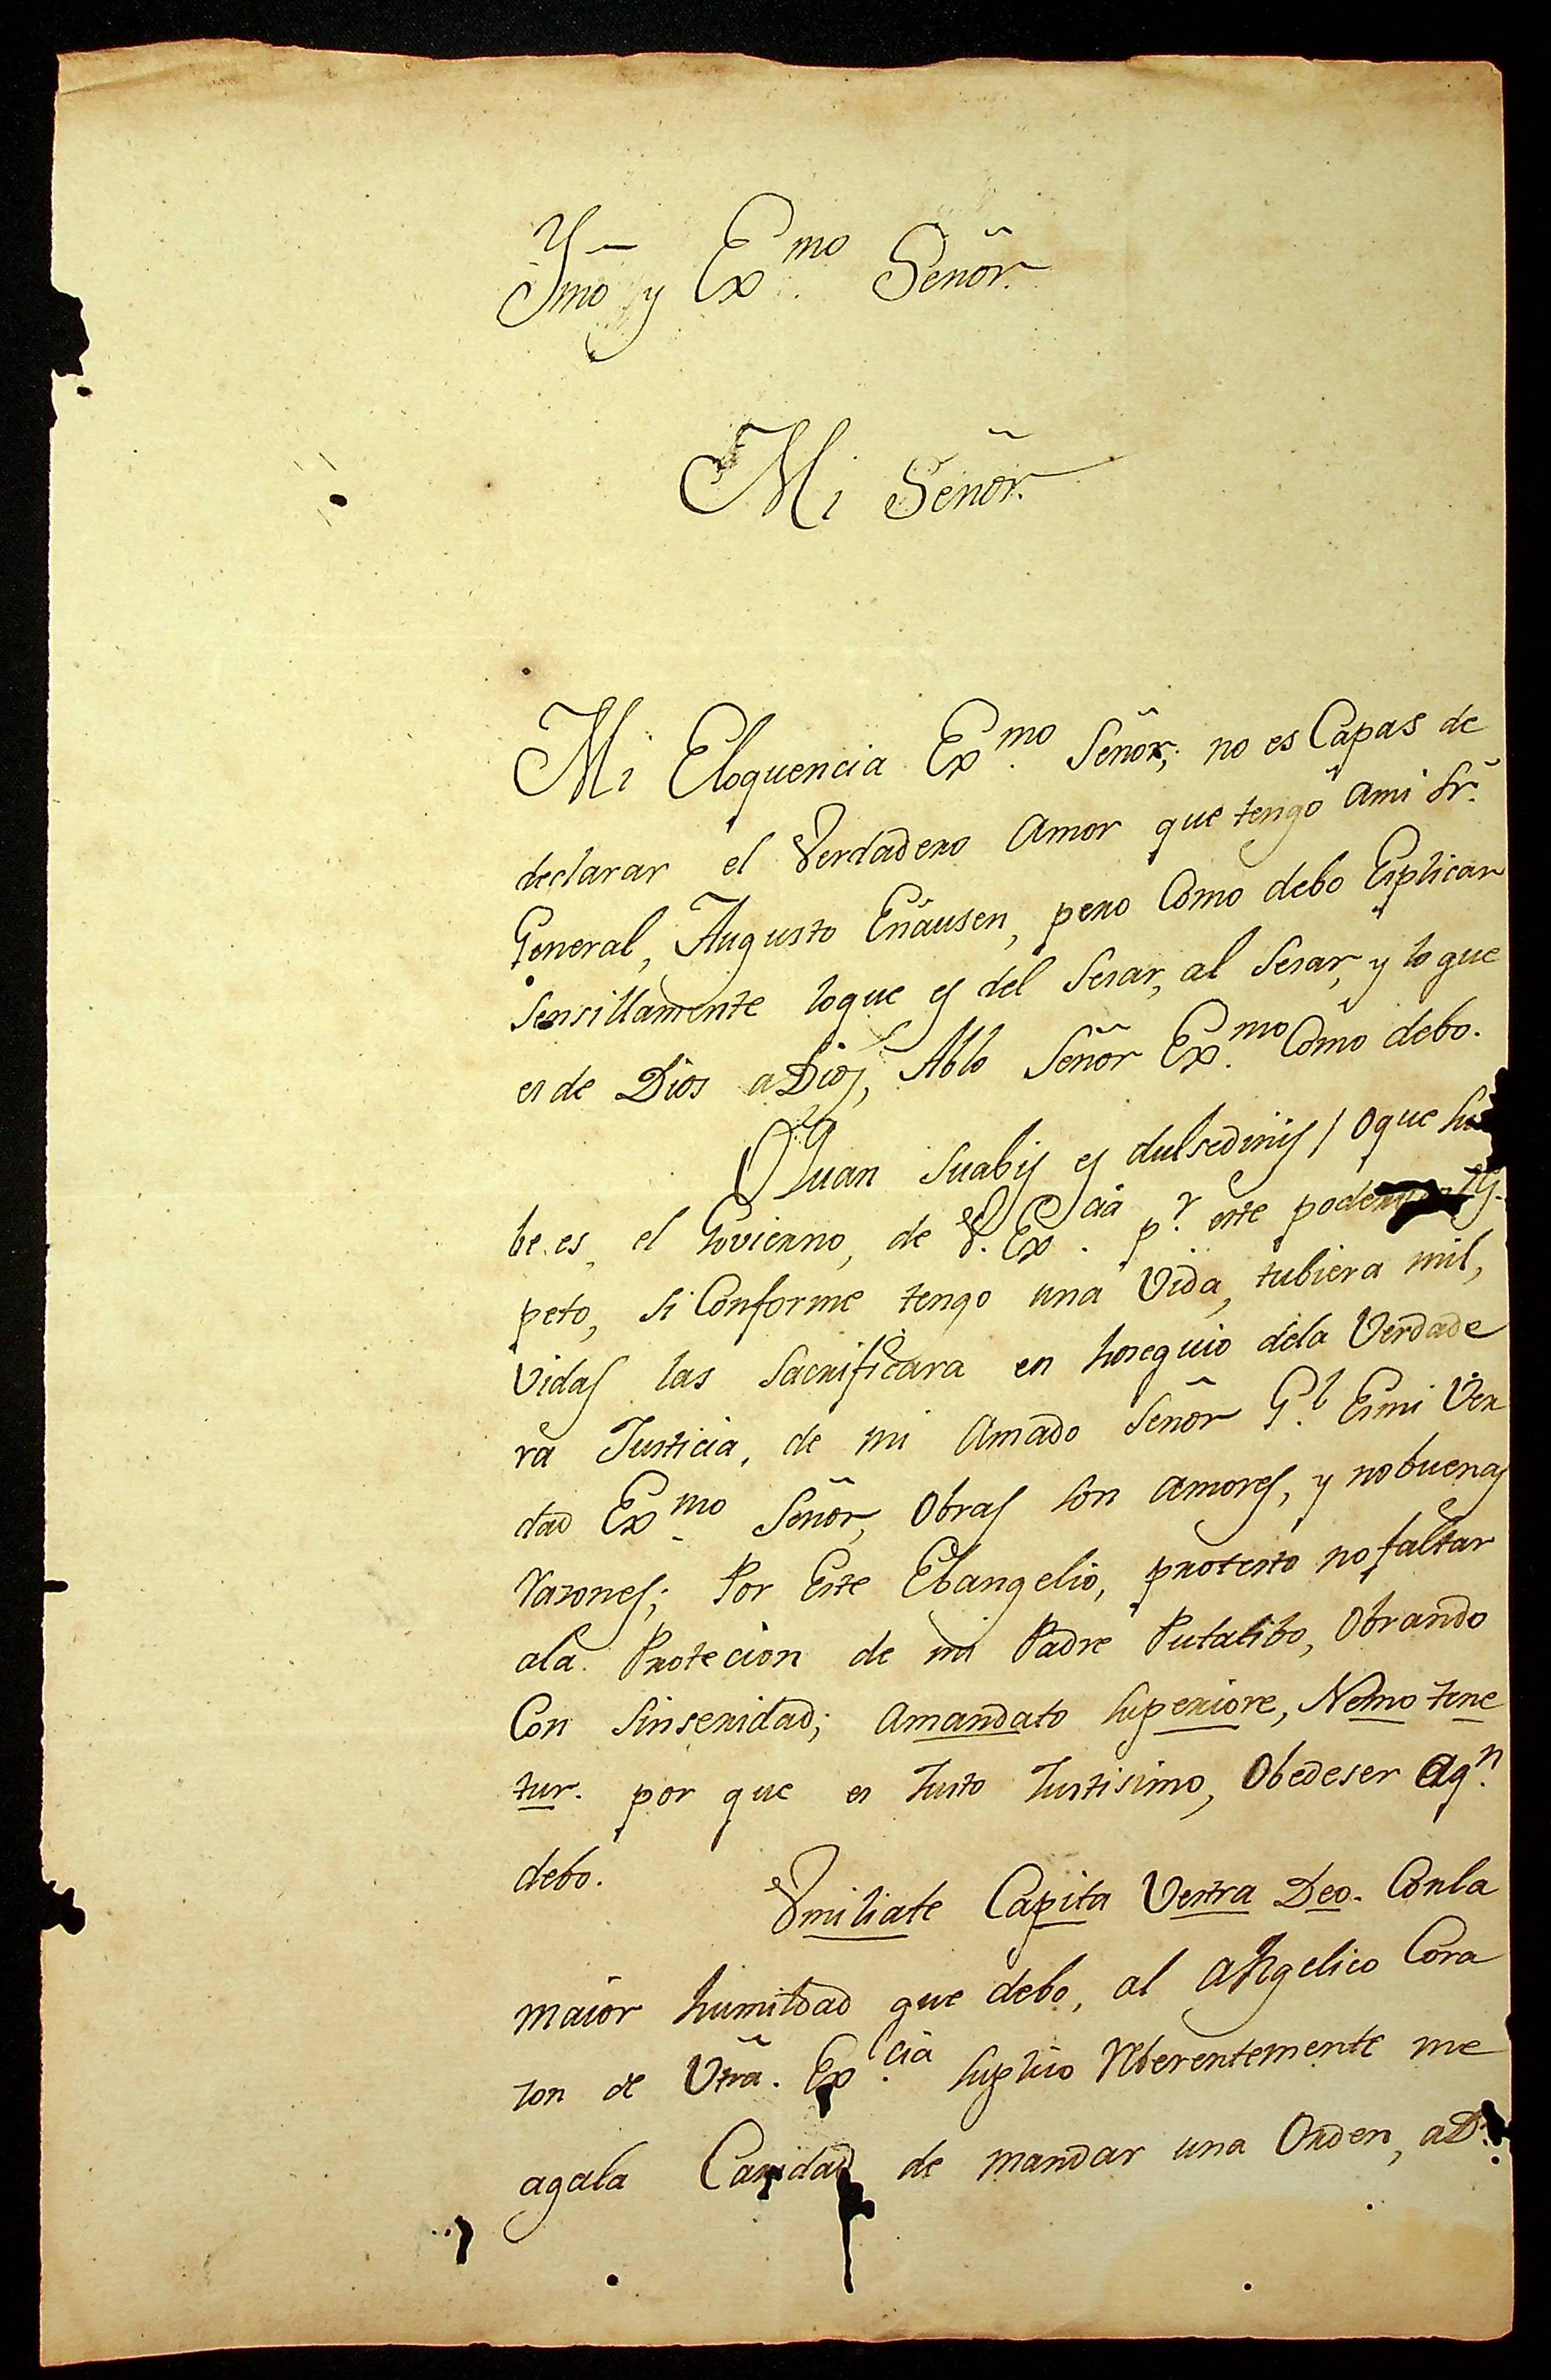 Ymõ y Ex.mo Señor.
Mi Señor.
Mi Eloquencia Ex.mo Señor; no es Capas de
declarar el Verdadero Amor que tengo Ami Sr.
General, Augusto Enausen, pero Como debo Esplicar
Sensillamente loque es del Sesar, al Sesar, y lo que
es de Dios a Dios, Ablo Señor Ex.mo Como debo.
Quan Suabis es dulsedinis / O que
be. es, el Govierno, de V. Ex.cia p.r este
peto, Si Conforme tengo una Vida, tubiera mil,
Vidas las Sacrificara en hosequio dela Verdade
ra Justicia, de mi Amado Señor G.l Esmi Ver
dad Ex.mo Señor, Obras Son amores, y nobuenas
Rasones; Por Este Ebangelio, protesto no faltar
ala Protecion de mi Padre Putatibo, Obrando
Con Sinseridad; Amandato Superiore, Nemo tene
tur. por que es Justo Justisimo, Obedeser Aq.n
debo.
Vmiliate Capita Vestra Deo. Conla
maior humildad que debo, al Angelico Cora
son de Vtrã. Ex.cia Suplico Reberentemente me
agala Caridad de mandar una Orden, aD.